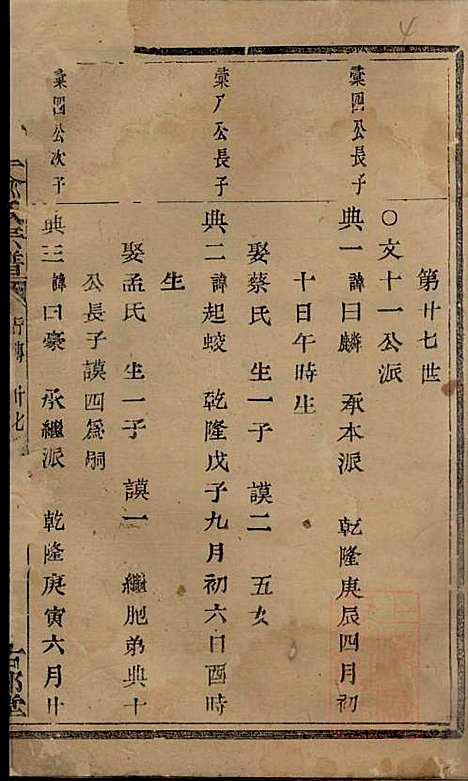 4
第廿七世
○文十一公派
彙四公長子
典一 諱曰麟 承本派 乾隆庚辰四月初
十日午時生
娶蔡氏 生一子 謨二 五女
彙八公長子
典二 諱起蛟 乾隆戊子九月初六日酉時
生
娶孟氏 生一子 謨一 繼胞弟典十
公長子謨四為嗣
彙四公次子
典三 諱曰豪 承繼派 乾隆庚寅六月廿
行傳 廿七